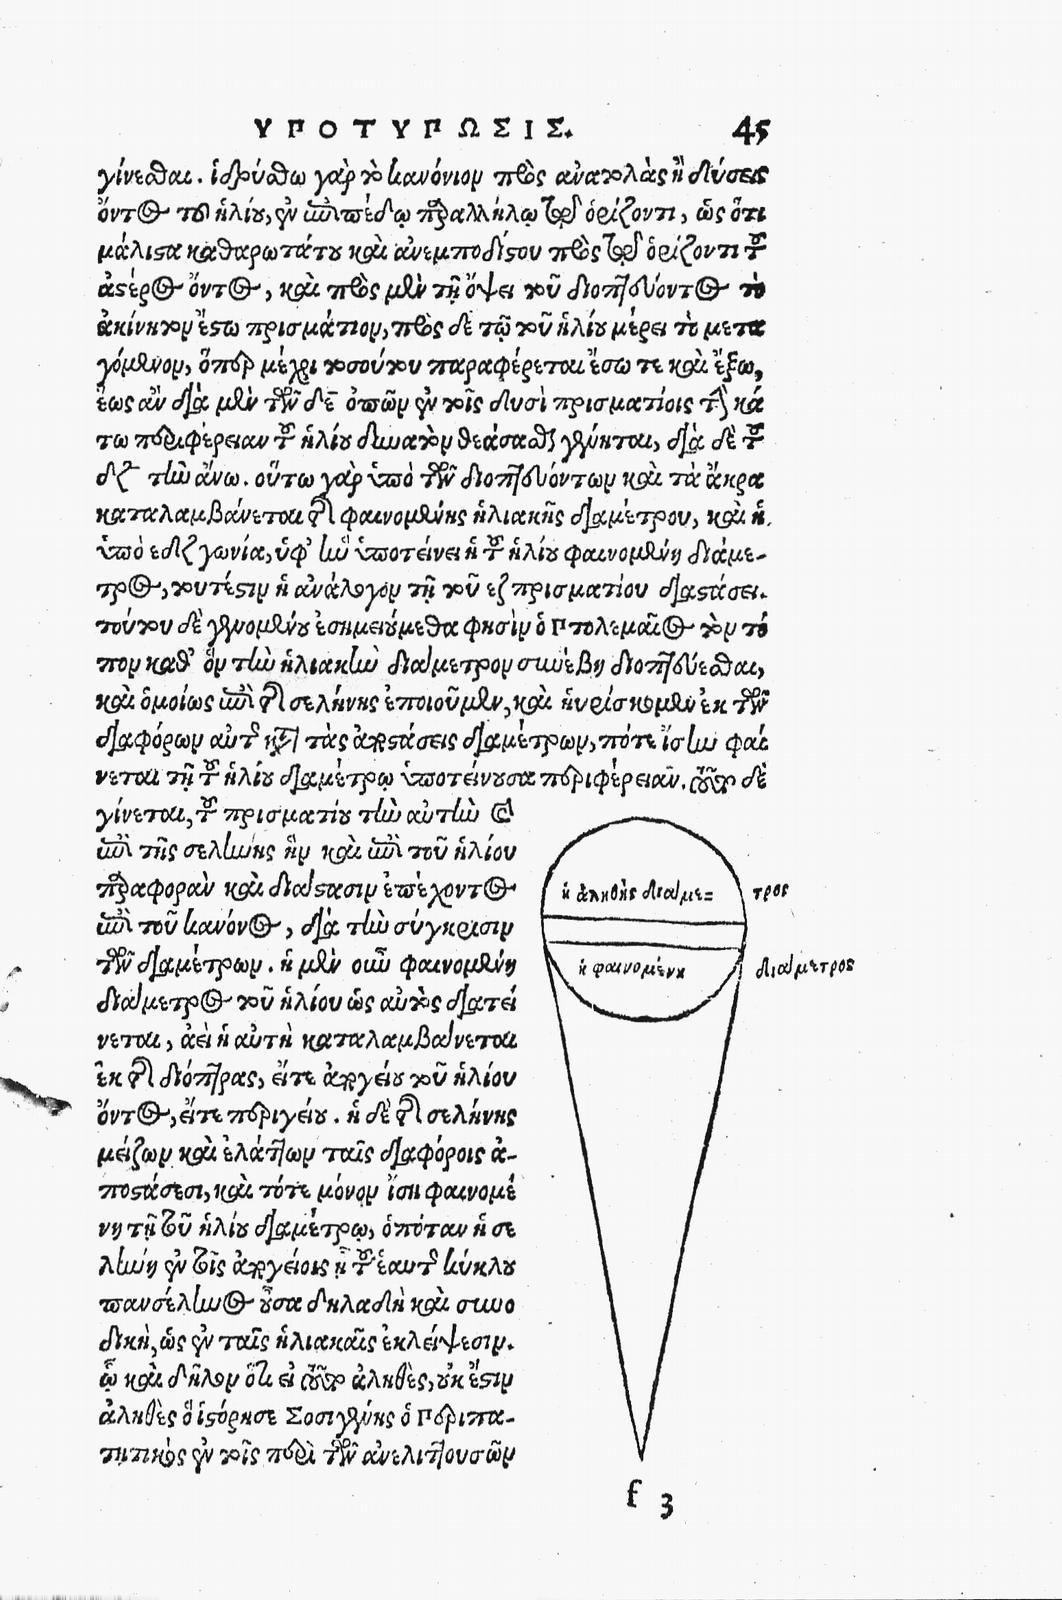 ΥΠΟΤΥΠΩΣΙΣ. 45
γίνεσθαι. ἱδρύσθω γὰρ τὸ κανόνιον πρὸς ἀνατολὰς ἢ δύσεις
ὄντος τοῦ ἡλίου, ἐν ἐπιπέδῳ παραλλήλῳ τῷ ὁρίζοντι, ὡς ὅτι
μάλιστα καθαρωτάτου καὶ ἀνεμποδίστου πρὸς τῷ ὁρίζοντι τοῦ
ἀστέρος ὄντος, καὶ πρὸς μὲν τῇ ὄψει τοῦ διοπτεύοντος τὸ
ἀκίνητον ἔστω πρισμάτιον, πρὸς δὲ τῷ τοῦ ἡλίου μέρει τὸ μετα
γόμενον, ὅπερ μέχρι τοσούτου παραφέρεται ἔσω τε καὶ ἔξω,
ἕως ἂν διὰ μὲν τῶν δε ὀπῶν ἐν τοῖς δυσὶ πρισματίοις τὴν κά
τω περιφέρειαν τοῦ ἡλίου δυνατὸν θεάσασθαι γένηται, διὰ δὲ τοῦ
δζ τὴν ἄνω. οὕτω γὰρ ὑπὸ τῶν διοπτευόντων καὶ τὰ ἄκρα
καταλαμβάνεται τῆς φαινομένης ἡλιακῆς διαμέτρου, καὶ ἡ
ὑπὸ εδζ γωνία, ὑφ' ἣν ὑποτείνει ἡ τοῦ ἡλίου φαινομένη διάμε-
τρος, τουτέστιν ἡ ἀνάλογον τῇ τοῦ εζ πρισματίου διαστάσει.
τούτου δὲ γενομένου ἐσημειούμεθα φησὶν ὁ Πτολεμαῖος τὸν τό
πον καθ' ὃν τὴν ἡλιακὴν διάμετρον συνέβη διοπτεύεσθαι,
καὶ ὁμοίως ἐπὶ τῆς σελήνης ἐποιοῦμεν, καὶ ηὑρίσκομεν ἐκ τῶν
διαφόρων αὐτῆς κατὰ τὰς ἀποστάσεις διαμέτρων, πότε ἴσην φαί
νεται τῇ τοῦ ἡλίου διαμέτρῳ ὑποτείνουσα περιφέρειαν. τοῦτο δὲ
γίνεται, τοῦ πρισματίου τὴν αὐτὴν καὶ
ἐπὶ τῆς σελήνης ἣν καὶ ἐπὶ τοῦ ἡλίου
παραφορὰν καὶ διάστασιν ἐπέχοντος
ἐπὶ τοῦ κανόνος, διὰ τὴν σύγκρισιν
τῶν διαμέτρων. ἡ μὲν οὖν φαινομένη
διάμετρος τοῦ ἡλίου ὡς αὐτὸς διατεί
νεται, ἀεὶ ἡ αὐτὴ καταλαμβάνεται
ἐκ τῆς διόπτρας, εἴτε ἀπογείου τοῦ ἡλίου
ὄντος, εἴτε περιγείου. ἡ δὲ τῆς σελήνης
μείζων καὶ ἐλάττων ταῖς διαφόροις ἀ-
ποστάσεσι, καὶ τότε μόνον ἴση φαινομέ
νη τῇ τοῦ ἡλίου διαμέτρῳ, ὁπόταν ἡ σε
λήνη ἐν τοῖς ἀπογείοις ᾖ τοῦ ἑαυτῆς κύκλου
πανσέληνος οὖσα δηλαδὴ καὶ συνο
δικὴ, ὡς ἐν ταῖς ἡλιακαῖς ἐκλείψεσιν.
ᾧ καὶ δῆλον ὅτι εἰ τοῦτο ἀληθὲς, οὐκ ἔστιν
ἀληθὲς ὃ ἱστόρησε Σοσιγένης ὁ Περιπα-
τητικὸς ἐν τοῖς περὶ τῶν ἀνελιττουσῶν
ἡ ἀληθὴς διάμε= τρος
ἡ φαινομένη διάμετρος
f 3